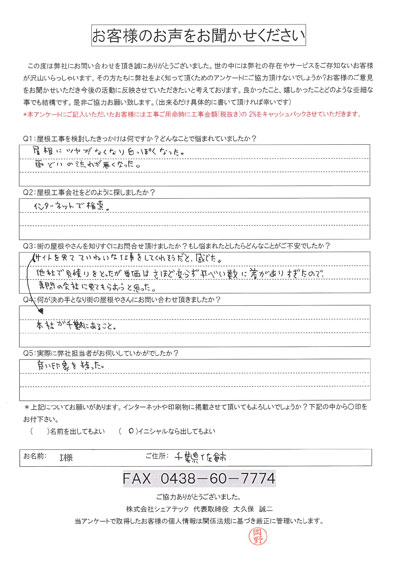 お客様のお声をお聞かせください
この度は弊社にお問い合わせを頂き誠にありがとうございました。世の中には弊社の存在やサービスをご存知ないお客様
が沢山いらっしゃいます。その方たちに弊社をよく知って頂くためのアンケートにご協力頂けないでしょうか?お客様のご意見
をお聞かせいただき今後の活動に反映させていただきたいと考えております。良かったこと、嬉しかったことどのような些細な
事でも結構です。是非ご協力お願い致します。(出来るだけ具体的に書いて頂ければ幸いです)
*本アンケートにご記入いただいたお客様には工事ご用命時に工事金額(税抜き)の 2%をキャッシュバックさせていただきます。
Q1:屋根工事を検討したきっかけは何ですか?どんなことで悩まれていましたか?
屋根にツヤがなくなり白っぽくなった。
雨どいの流れが悪くなった。
Q2:屋根工事会社をどのように探しましたか?
インターネットで検索。
Q3:街の屋根やさんを知りすぐにお問合せ頂けましたか?もし悩まれたとしたらどんなことがご不安でしたか?
サイトを見てていねいな仕事をしてくれそうだと、感じた。
他社で見積りをとったが単価はさほど変らず平べい数に差がありすぎたので、
専門の会社に見てもらおうと思った。
Q4:何が決め手となり街の屋根やさんにお問い合わせ頂きましたか?
本社が千葉にあること。
Q5:実際に弊社担当者がお伺いしていかがでしたか?
良い印象を持った。
*上記についてお願いがあります。インターネットや印刷物に掲載させて頂いてもよろしいでしょうか?下記の中から○印を
お付け下さい。
( )名前を出してもよい ( ○ )イニシャルなら出してもよい
お名前: I様 ご住所: 千葉県佐倉市
FAX 0438-60-7774
ご協力ありがとうございました。
株式会社シェアテック 代表取締役 大久保 誠二
当アンケートで取得したお客様の個人情報は関係法規に基づき厳正に管理いたします。
岡野